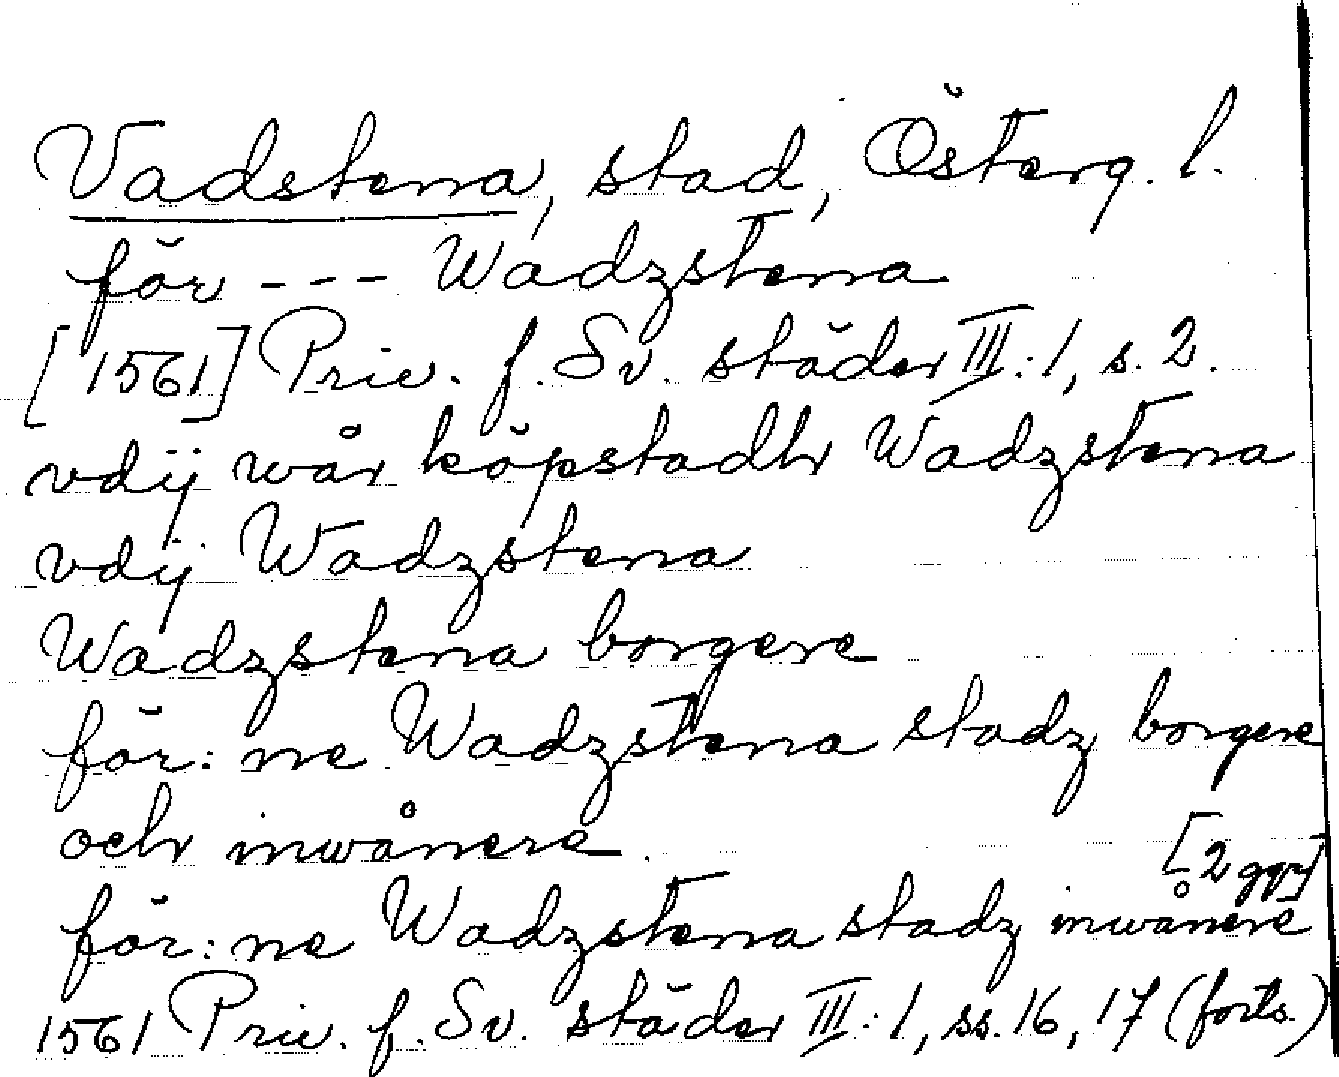 Vadstena, stad, Österg. l.
för --- Wadzstena
[1561] Priv. f. Sv. städer III:1, s. 2.
vdÿ wår köpstadh Wadzstena
vdÿ Wadzstena
Wadzstena borgere
för:ne Wadzstena stadz borgere
och inwånere
[2 ggr]
för:ne Wadzstena stadz inwånere
1561 Priv. f. Sv. städer III:1, ss. 16, 17 (forts.)